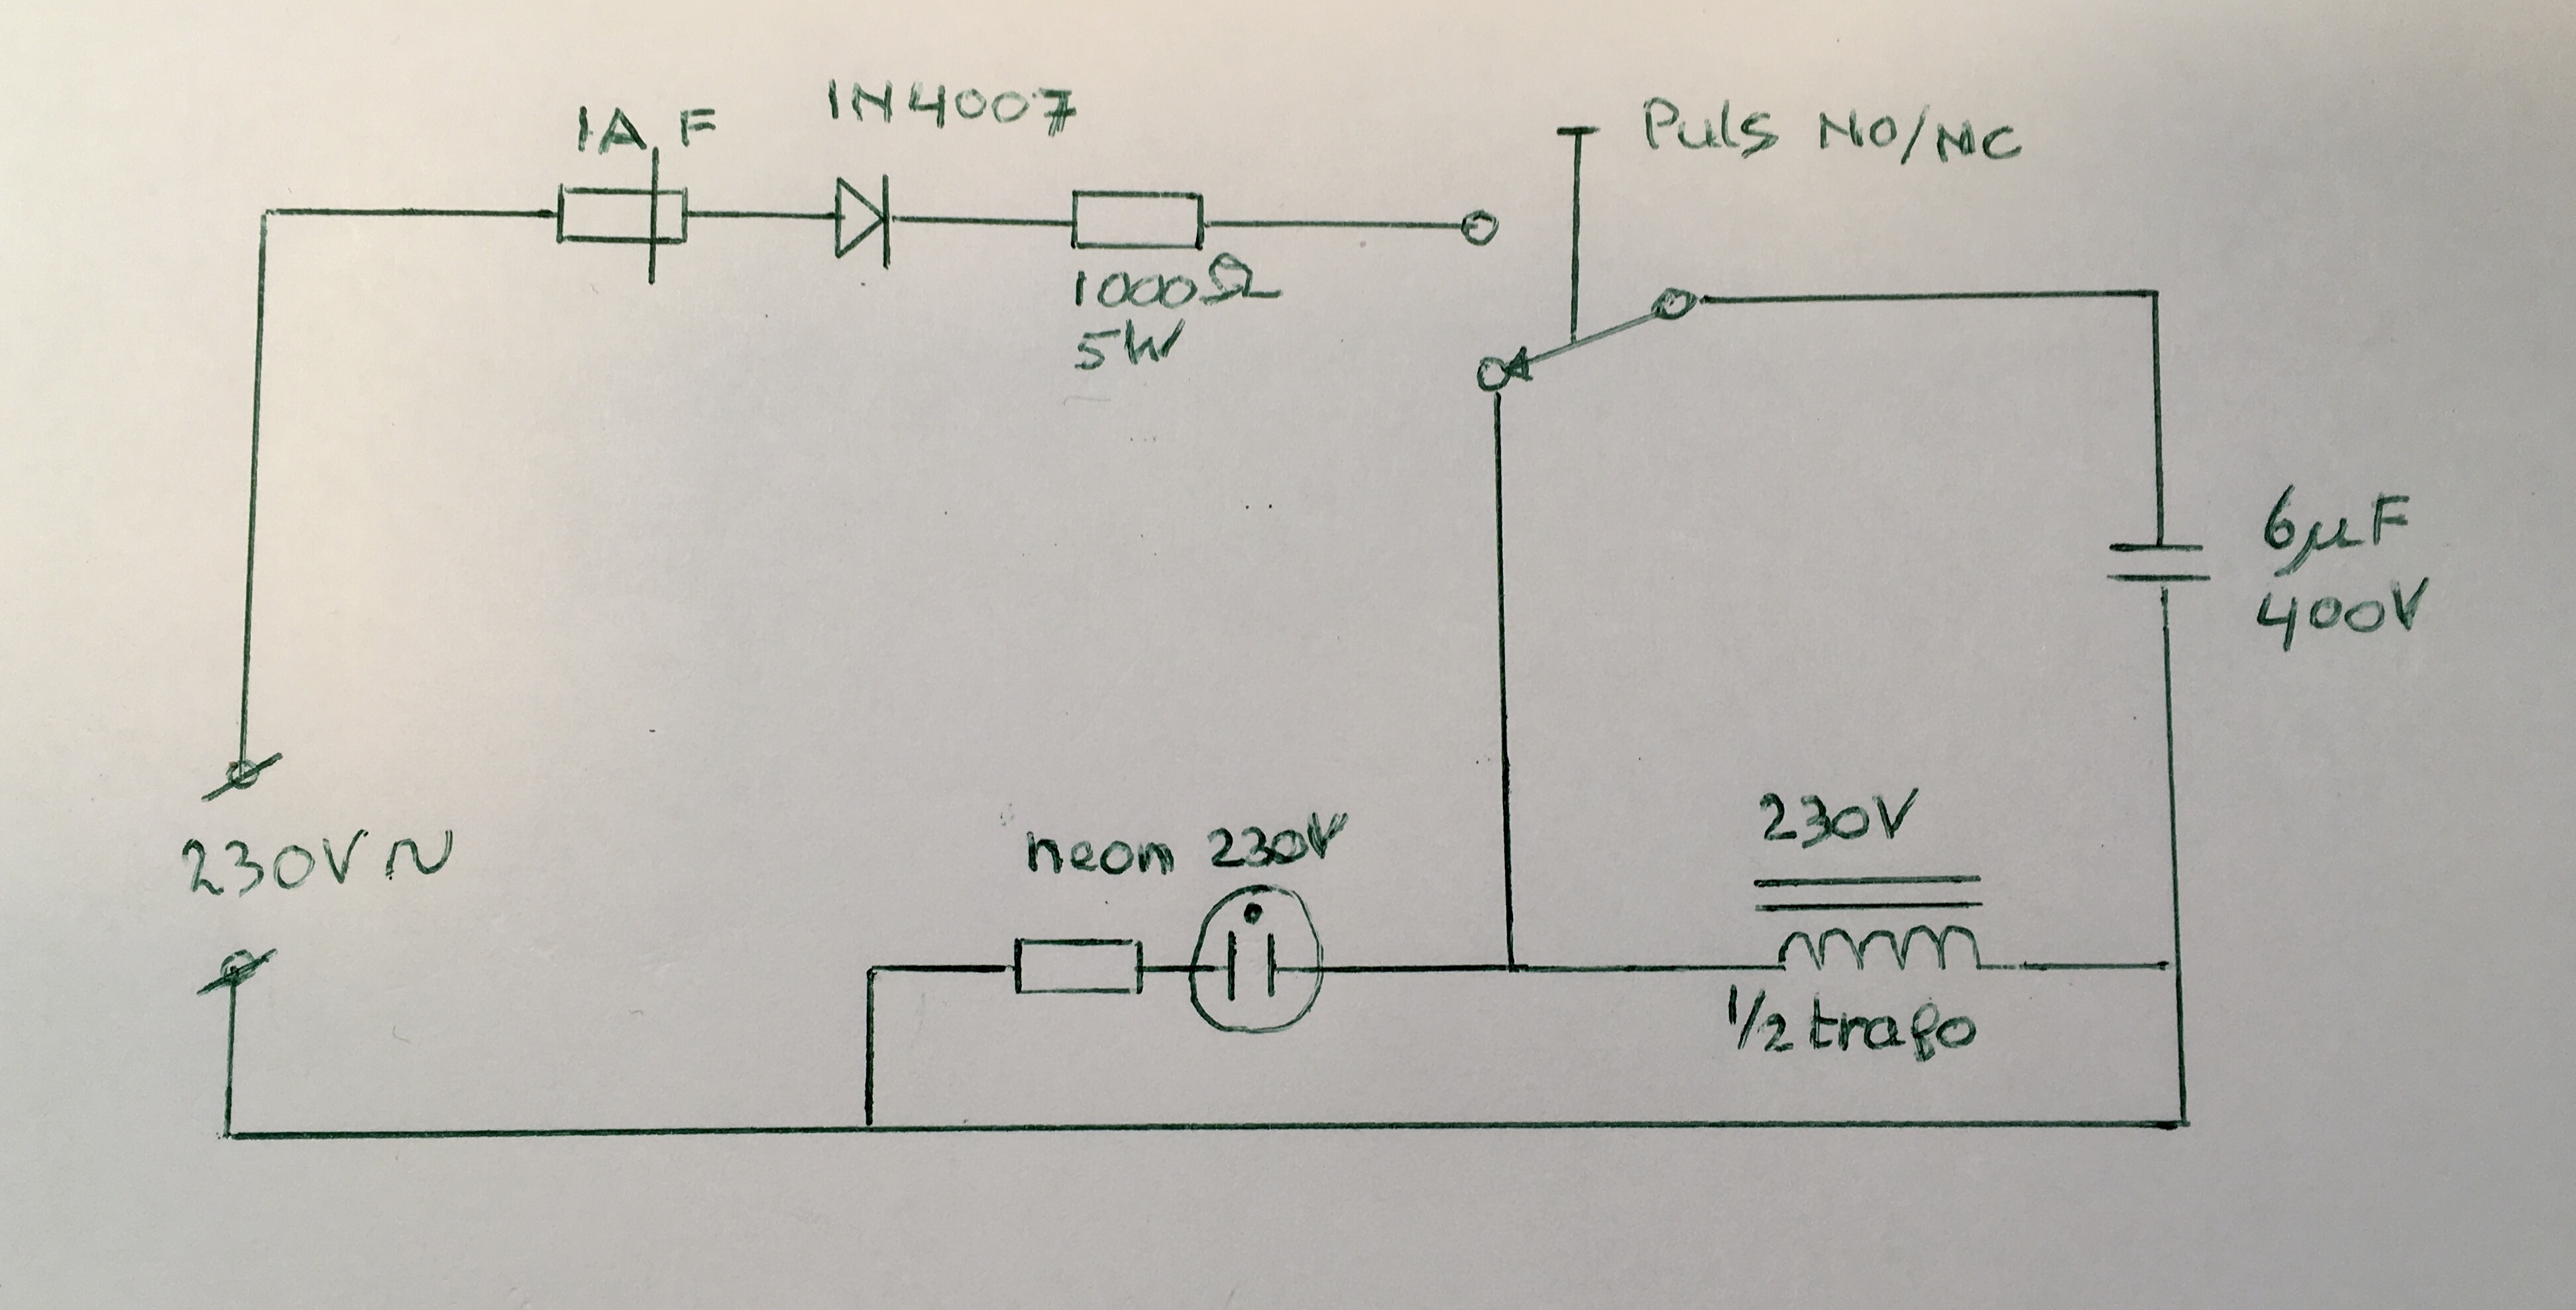 1A F
1N4007
Puls NO/NC
1000Ω
5W
6µF
400V
230V~
neon 230V
230V
1/2 trafo